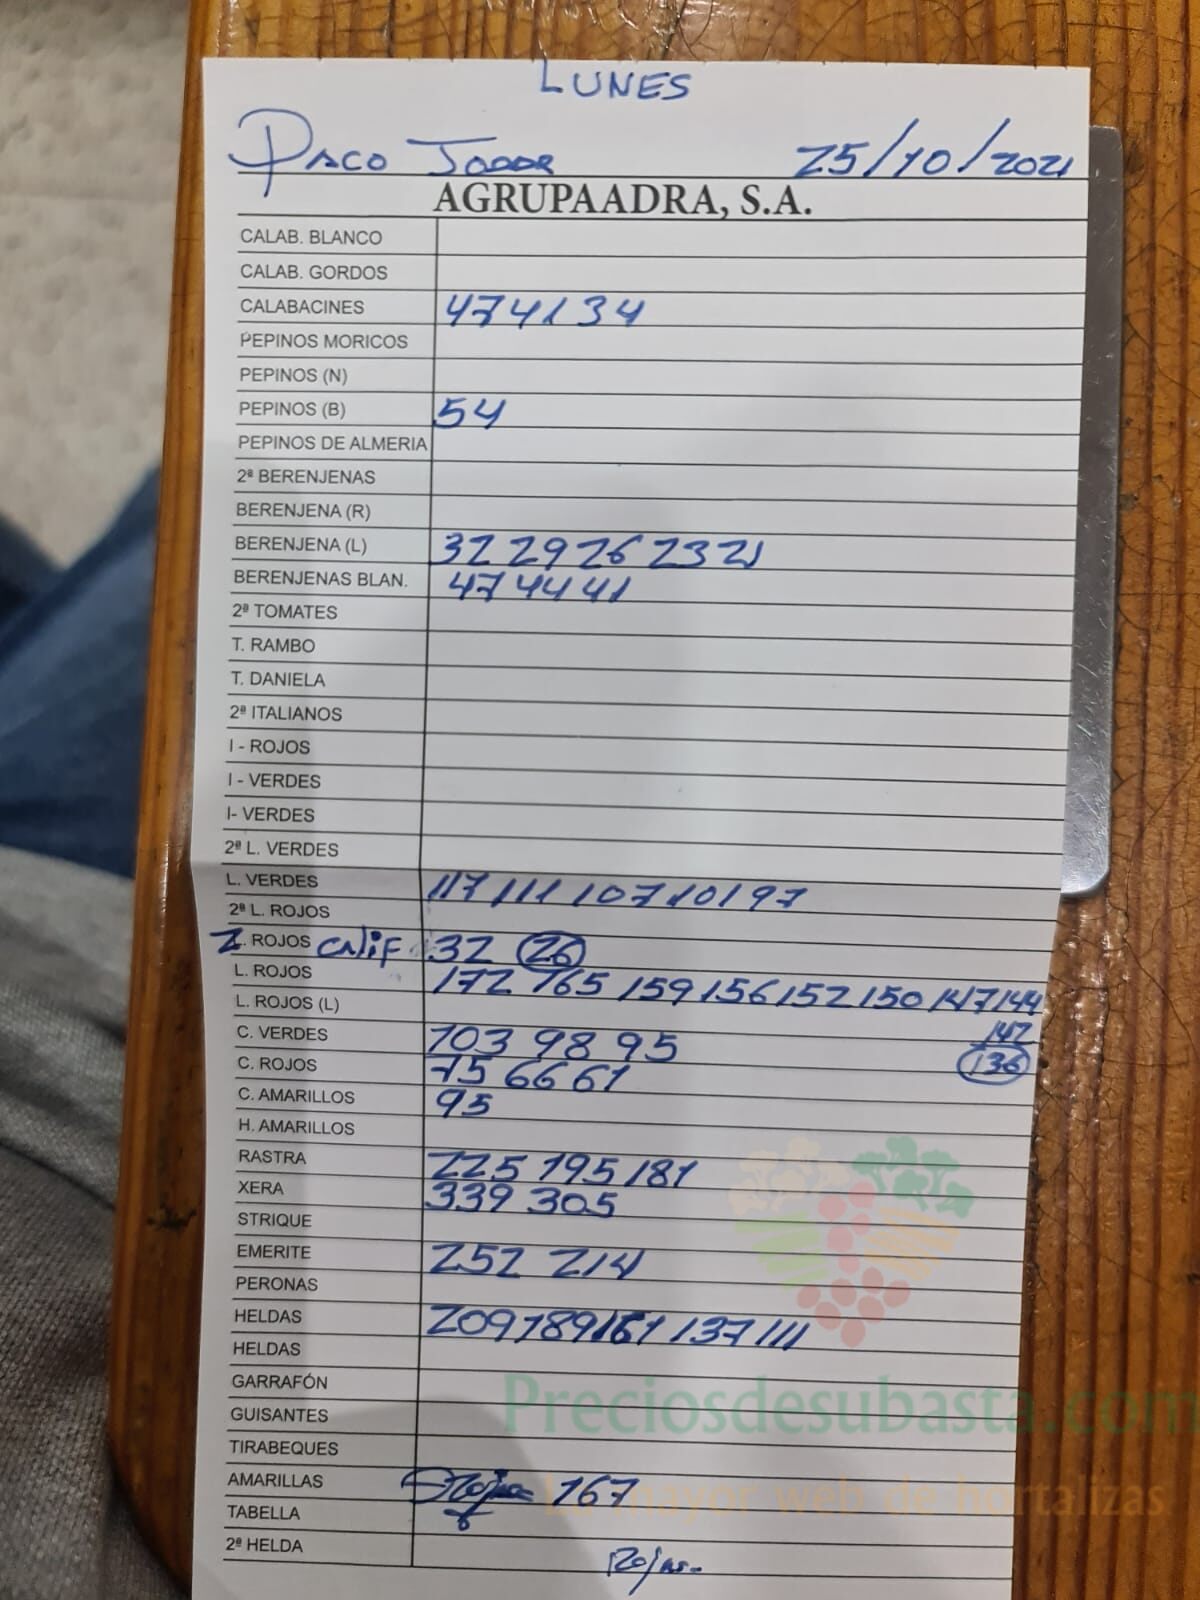 LUNES
Paco 25/10/2021
AGRUPAADRA, S.A.
CALAB. BLANCO
CALAB. GORDOS
CALABACINES 47 41 34
PEPINOS MORICOS
PEPINOS (N)
PEPINOS (B) 54
PEPINOS DE ALMERIA
2ª BERENJENAS
BERENJENA (R)
BERENJENA (L) 32 29 26 23 21
BERENJENAS BLAN. 47 44 41
2ª TOMATES
T. RAMBO
T. DANIELA
2ª ITALIANOS
I - ROJOS
I - VERDES
I- VERDES
2ª L. VERDES
L. VERDES 117 111 107 101 97
2ª L. ROJOS
2. ROJOS CALIF 32 26
L. ROJOS 172 165 159 156 152 150 147 144
L. ROJOS (L) 142
C. VERDES 103 98 95 136
C. ROJOS 75 66 61
C. AMARILLOS 95
H. AMARILLOS
RASTRA 225 195 181
XERA 339 305
STRIQUE
EMERITE 252 214
PERONAS
HELDAS 209 189 161 137 111
HELDAS
GARRAFÓN
Preciosdesubasta.com
GUISANTES
TIRABEQUES
AMARILLAS 167
La mayor web de hortalizas
TABELLA
2ª HELDA Rojas